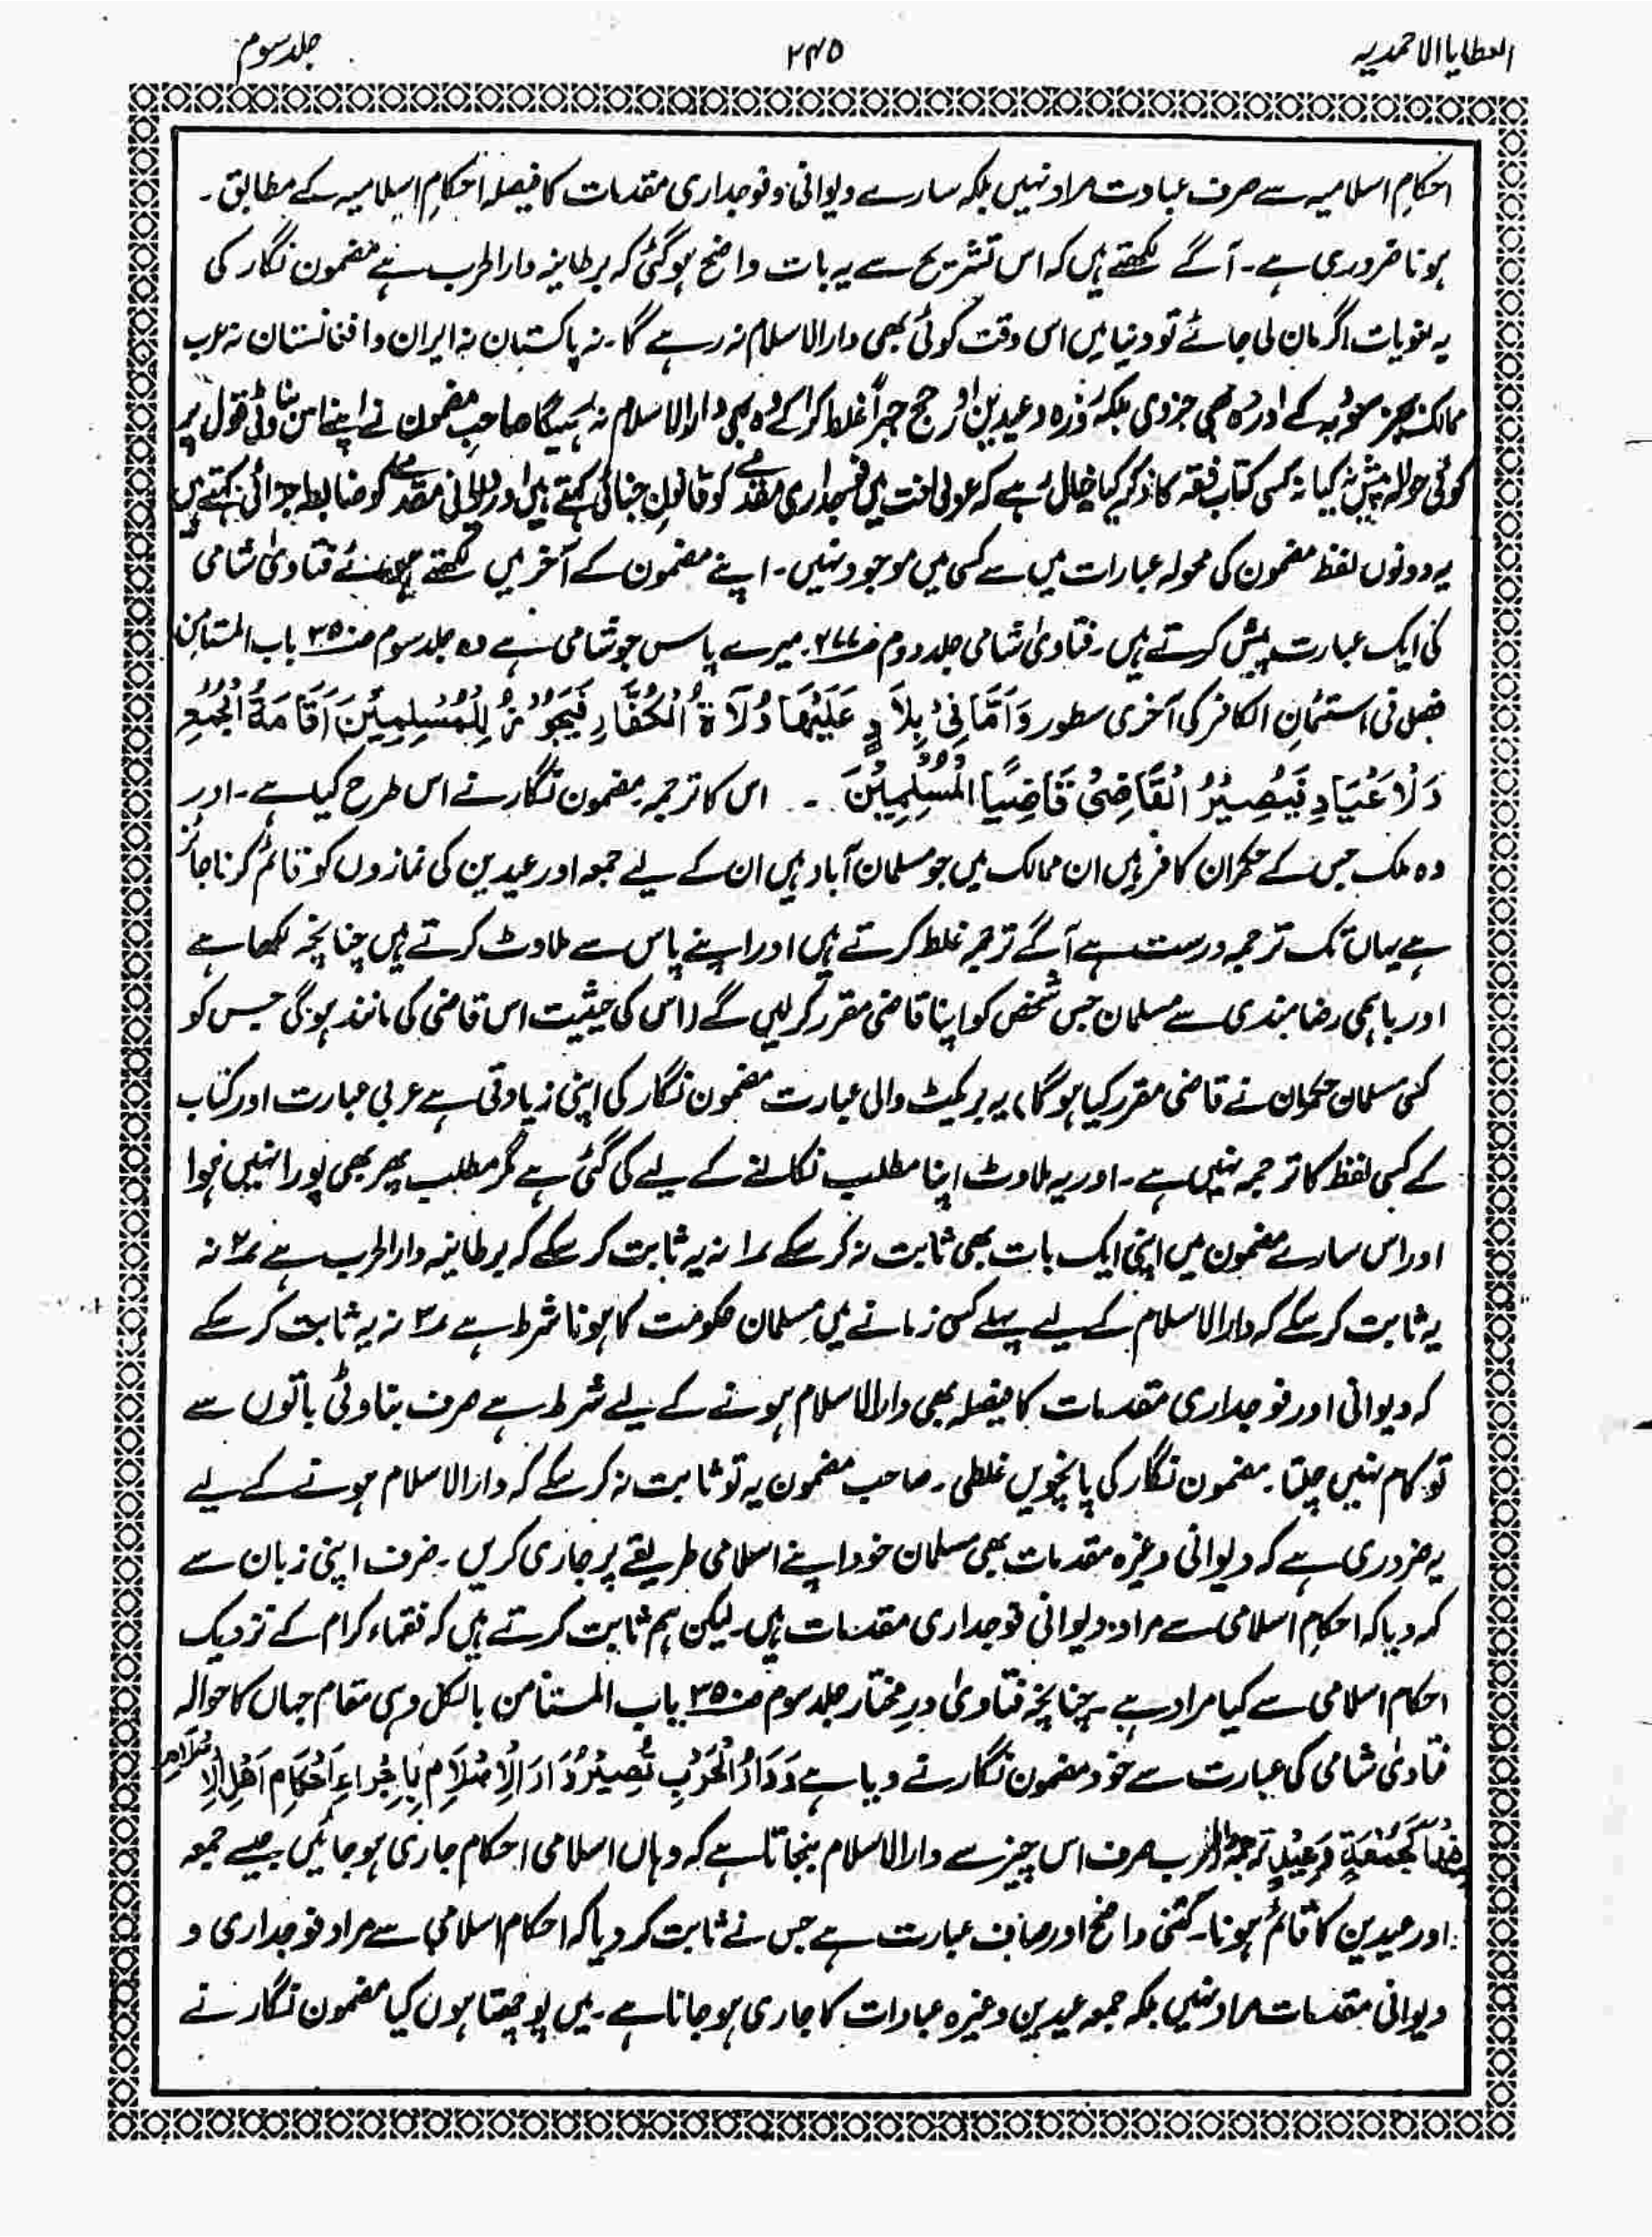 العطایا الاحمدیہ
۲۴۵
جلد سوم
احکامِ اسلامیہ سے صرف عبادت مراد نہیں بلکہ سارے دیوانی و فوجداری مقدمات کا فیصلہ احکامِ اسلامیہ کے مطابق ۔
ہونا ضروری ہے ۔ آگے لکھتے ہیں کہ اس تشریح سے یہ بات واضح ہو گئی کہ برطانیہ دارالحرب ہے مضمون نگار کی
یہ لغویات اگر مان لی جائے تو دنیا میں اس وقت کوئی بھی دارالاسلام نہ رہے گا ۔ نہ پاکستان نہ ایران و افغانستان نہ عرب
ممالک بجز سعودیہ کے اور وہ بھی جزوی بلکہ روزہ و عیدین اور حج جبراً غلط کرا کے وہ بھی دارالاسلام نہ رہیگا صاحبِ مضمون نے اپنے اس بناوٹی قول پر
کوئی حوالہ پیش نہ کیا نہ کسی کتاب فقہ کا ذکر کیا خیال رہے کہ عربی لغت میں فوجداری مقدمے کو قانونِ جنائی کہتے ہیں اور دیوانی مقدمے کو ضابطہ جزائی کہتے ہیں
یہ دونوں لفظ مضمون کی محولہ عبارات میں سے کسی میں موجود نہیں ۔ اپنے مضمون کے آخر میں لکھتے ہوئے فتاویٰ شامی
کی ایک عبارت پیش کرتے ہیں ۔ فتاویٰ شامی جلد دوم ص۲۷۷ ۔ میرے پاس جو شامی ہے وہ جلد سوم ص۳۵۰ باب المستامن
فصل فی استئمانِ الکافر کی آخری سطور وَاَمَّا فِیْ بِلاَدٍ عَلَیْھَا وُلاَۃُ الْکُفَّارِ فَیَجُوْزُ لِلْمُسْلِمِیْنَ اَقَامَۃُ الْجُمَعِ
وَلْاَعْیَادِ فَیَصِیْرُ الْقَاضِیْ قَاضِیًا الْمُسْلِمِیْنَ ۔ ۔ اس کا ترجمہ مضمون نگار نے اس طرح کیا ہے ۔ اور
وہ ملک جس کے حکمران کافر ہیں ان ممالک میں جو مسلمان آباد ہیں ان کے لیے جمعہ اور عیدین کی نمازوں کو قائم کرنا جائز
ہے یہاں تک ترجمہ درست ہے آگے ترجمہ غلط کرتے ہیں اور اپنے پاس سے ملاوٹ کرتے ہیں چنانچہ لکھا ہے
اور باہمی رضا مندی سے مسلمان جس شخص کو اپنا قاضی مقرر کر لیں گے (اس کی حیثیت اس قاضی کی مانند ہو گی جس کو
کسی مسلمان حکمران نے قاضی مقرر کیا ہو گا) یہ بریکٹ والی عبارت مضمون نگار کی اپنی زیادتی ہے عربی عبارت اور کتاب
کے کسی لفظ کا ترجمہ نہیں ہے ۔ اور یہ ملاوٹ اپنا مطلب نکالنے کے لیے کی گئی ہے مگر مطلب پھر بھی پورا نہیں ہوا
اور اس سارے مضمون میں اپنی ایک بات بھی ثابت نہ کر سکے ۱؎ نہ یہ ثابت کر سکے کہ برطانیہ دارالحرب ہے ۲؎ نہ
یہ ثابت کر سکے کہ دارالاسلام کے لیے پہلے کسی زمانے میں مسلمان حکومت کا ہونا شرط ہے ۳؎ نہ یہ ثابت کر سکے
کہ دیوانی اور فوجداری مقدمات کا فیصلہ بھی دارالاسلام ہونے کے لیے شرط ہے صرف بناوٹی باتوں سے
تو کام نہیں چلتا ۔ مضمون نگار کی پانچویں غلطی ۔ صاحب مضمون یہ تو ثابت نہ کر سکے کہ دارالاسلام ہونے کے لیے
یہ ضروری ہے کہ دیوانی وغیرہ مقدمات بھی مسلمان خود اپنے اسلامی طریقے پر جاری کریں ۔ صرف اپنی زبان سے
کہہ دیا کہ احکامِ اسلامی سے مراد دیوانی فوجداری مقدمات ہیں ۔ لیکن ہم ثابت کرتے ہیں کہ فقہاء کرام کے نزدیک
احکام اسلامی سے کیا مراد ہے ۔ چنانچہ فتاویٰ درِ مختار جلد سوم ص۳۵۰ باب المستامن بالکل وہی مقام جہاں کا حوالہ
فتاویٰ شامی کی عبارت سے خود مضمون نگار نے دیا ہے وَدَارُ الْحَرْبِ تَصِیْرُ دَارَ الْاِسْلَامِ بِاِجْرَاءِ اَحْکَامِ اَھْلِ الْاِسْلَامِ
فِیْھَا کَجُمْعَۃٍ وَعِیْدٍ ترجمہ دارالحرب صرف اس چیز سے دارالاسلام بنجاتا ہے کہ وہاں اسلامی احکام جاری ہو جائیں جیسے جمعہ
اور عیدین کا قائم ہونا ۔ کتنی واضح اور صاف عبارت ہے جس نے ثابت کر دیا کہ احکام اسلامی سے مراد فوجداری و
دیوانی مقدمات مراد نہیں بلکہ جمعہ عیدین وغیرہ عبادات کا جاری ہو جانا ہے ۔ میں پوچھتا ہوں کیا مضمون نگار نے